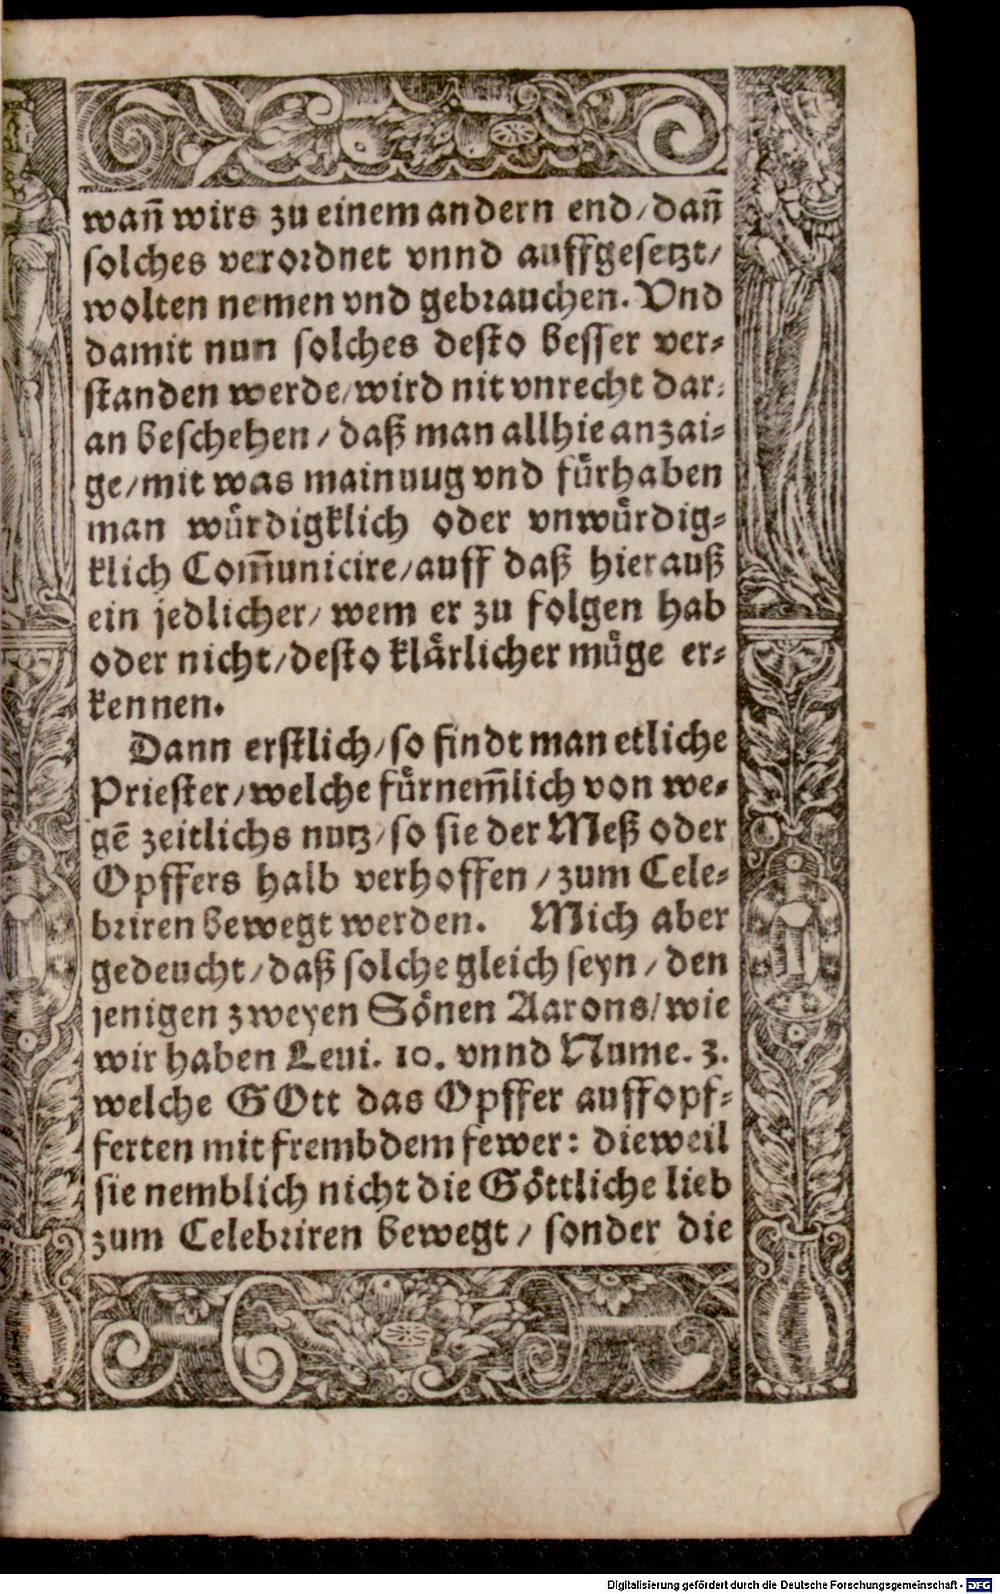 wañ wirs zu einem andern end/dañ
solches verordnet vnnd auffgesetzt/
wolten nemen vnd gebrauchen. Vnd
damit nun solches desto besser ver-
standen werde/wird nit vnrecht dar-
an beschehen/daß man allhie anzai-
ge/mit was mainuug vnd fuͤrhaben
man wuͤrdigklich oder vnwuͤrdig-
klich Com̄unicire/auff daß hierauß
ein jedlicher/wem er zu folgen hab
oder nicht/desto klaͤrlicher muͤge er-
kennen.
Dann erstlich/so findt man etliche
Priester/welche fuͤrnem̄lich von we-
gē zeitlichs nutz/so sie der Meß oder
Opffers halb verhoffen/zum Cele-
briren bewegt werden. Mich aber
gedeucht/daß solche gleich seyn/den
jenigen zweyen Soͤnen Aarons/wie
wir haben Leui. 10. vnnd Nume. 3.
welche GOtt das Opffer auffopf-
ferten mit frembdem fewer: dieweil
sie nemblich nicht die Goͤttliche lieb
zum Celebriren bewegt/sonder die
Digitalisierung gefördert durch die Deutsche Forschungsgemeinschaft - DFG